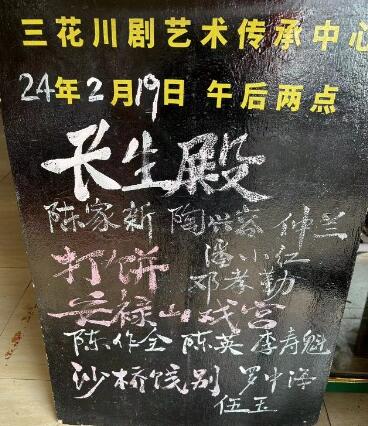 三花川剧艺术传承中心
24年2月19日 午后两点
长生殿
陈家新 陶兴容 仲兰
打饼 潘小红
邓孝勤
云禄山戏宫
陈作全 陈英 李寿魁
沙桥饯别 罗中海
伍玉